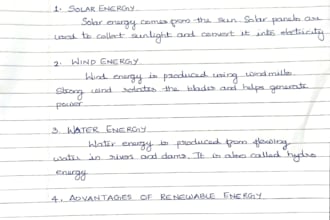 1. SOLAR ENERGY
Solar energy comes from the sun. Solar panels are
used to collect sunlight and convert it into electricity
2. WIND ENERGY
Wind energy is produced using windmills.
Strong wind rotates the blades and helps generate
power
3. WATER ENERGY
Water energy is produced from flowing
water in rivers and dams. It is also called hydro
energy
4. ADVANTAGES OF RENEWABLE ENERGY